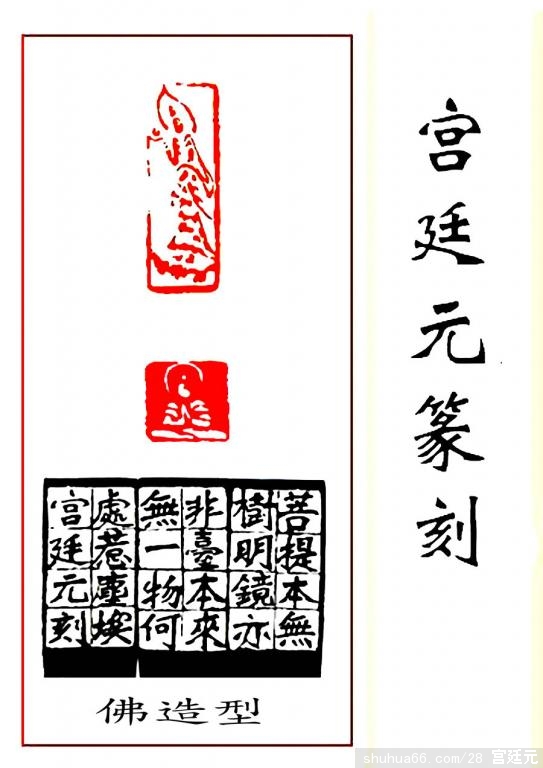 宫廷元篆刻
菩提本無
樹明鏡亦
非臺本來
無一物何
處惹塵埃
宫廷元刻
佛造型
shuhua66.com/28 宫廷元